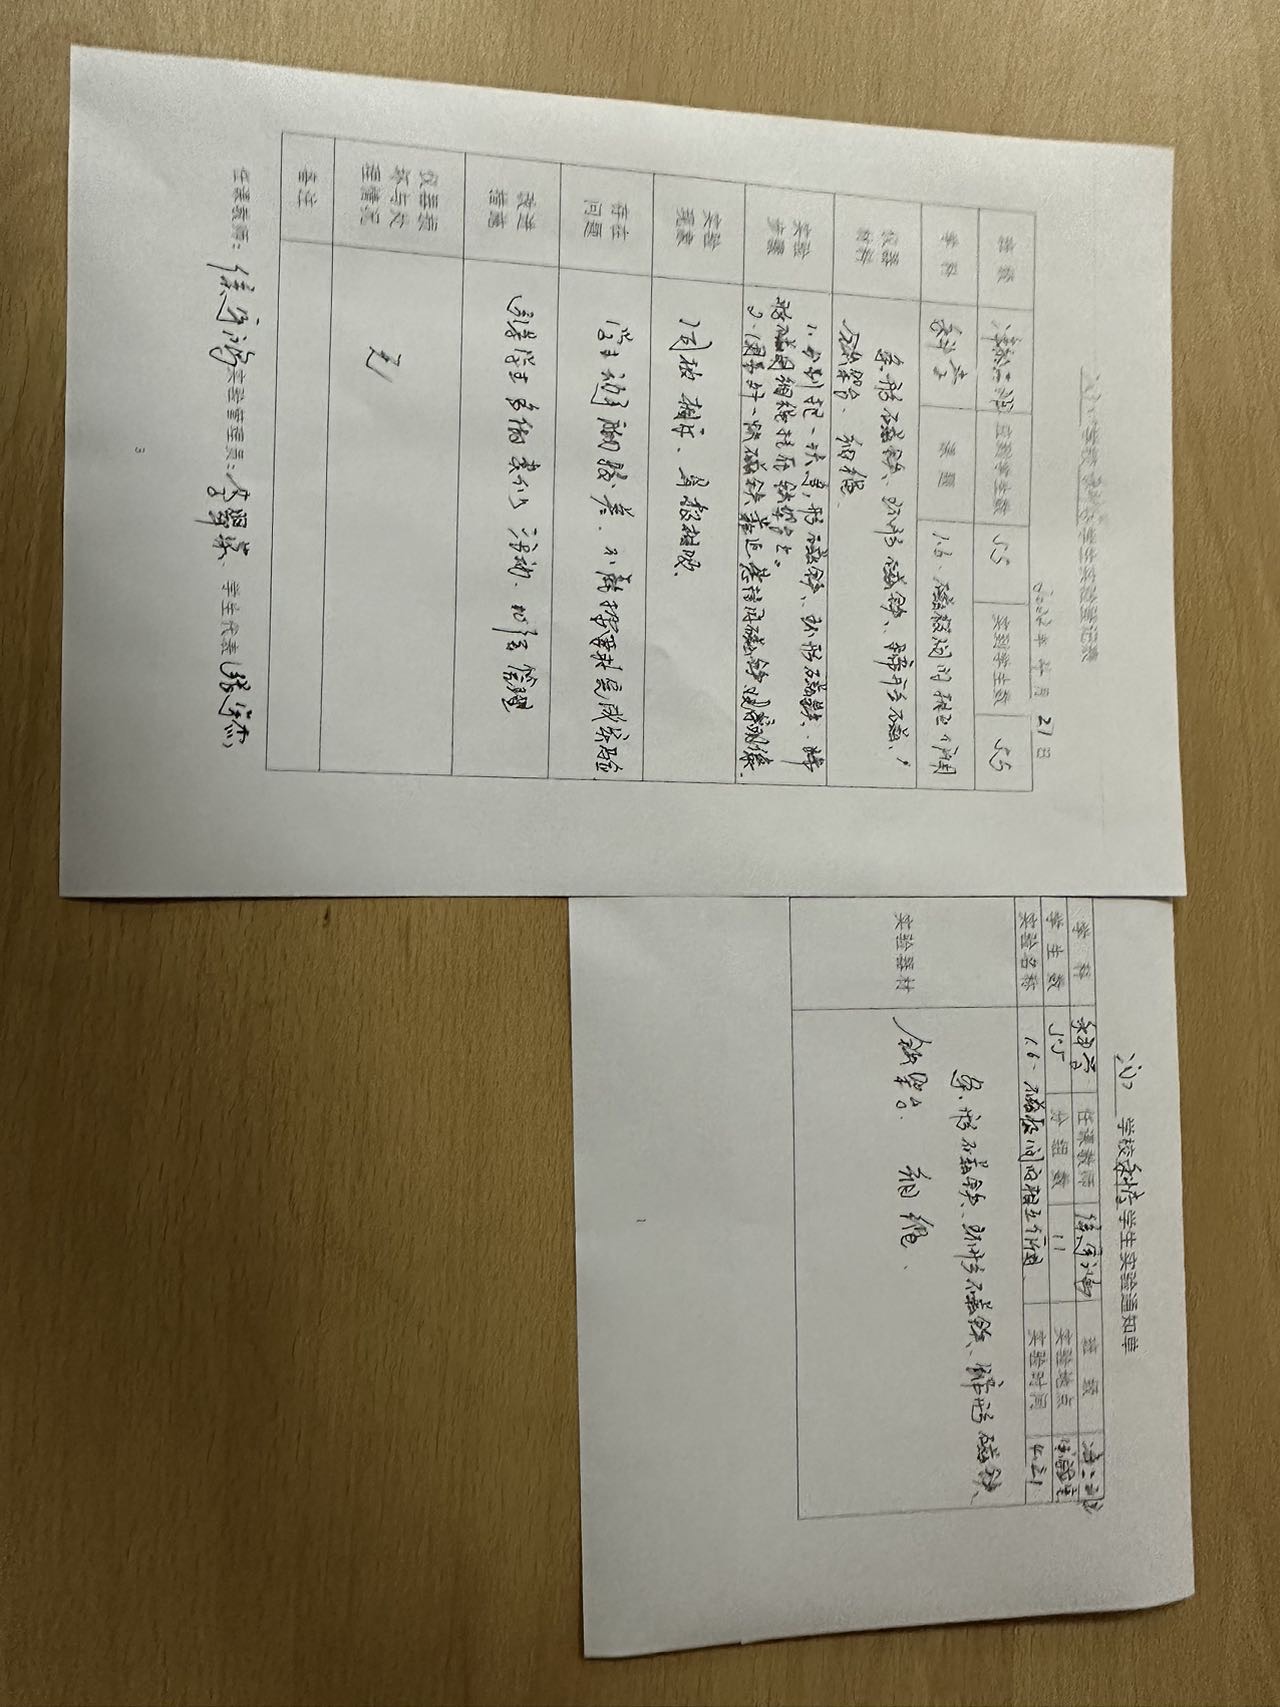 学校 学生实验登记表
年 4 月 21 日
班级 应到学生数 55 实到学生数 55
学科 科学 课题 1.6、磁极间的相互作用
仪器材料 条形磁铁、环形磁铁、蹄形磁
铁架台、细绳
实验步骤 1、分别把一块条形磁铁、环形磁铁、蹄
形磁用细绳挂在铁架台上。
2、用另外一块磁铁靠近悬挂的磁铁
实验现象 同极相斥、异极相吸
存在问题 学生动手能力较差、不能按要求完成实验
改进措施 引导学生多做实验活动、加强管理
仪器损坏与处理情况 无
备注
任课教师: 实验管理员: 学生代表
3
学校科学学生实验通知单
学科 科学 任课教师 班级
学生数 55 分组数 11 实验地点 实验室
实验名称 1.6、磁极间的相互作用 实验时间 4.21
实验器材 条形磁铁、环形磁铁、蹄形磁铁、
铁架台、细绳